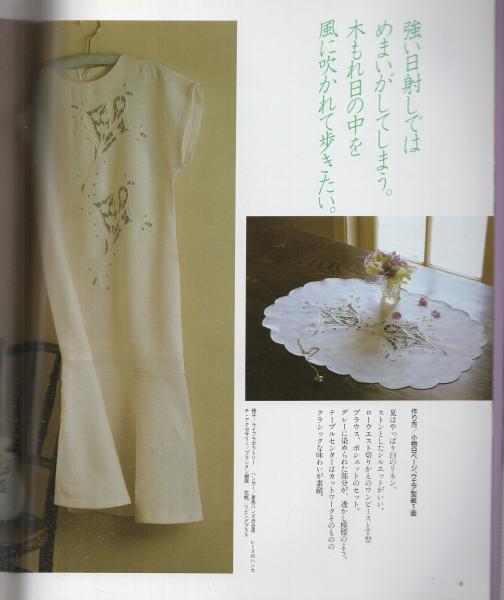 強い日射しでは
めまいがしてしまう。
木もれ日の中を
風に吹かれて歩きたい。
作り方／小物90ページ、ウエア型紙1面
夏はやっぱり白のリネン。
ストンとしたシルエットがいい、
ローウエスト切りかえのワンピースとT型
ブラウス、ポシェットのセット。
グレーに染められた部分が、透かし模様のよう。
テーブルセンターはカットワークそのものの
クラシックな味わいが素敵。
椅子／ライフラボラトリー　ハンガー／東急ハンズ渋谷店　レースのハンカ
チ・アクセサリー／プランタン銀座　花瓶／リビングプラス